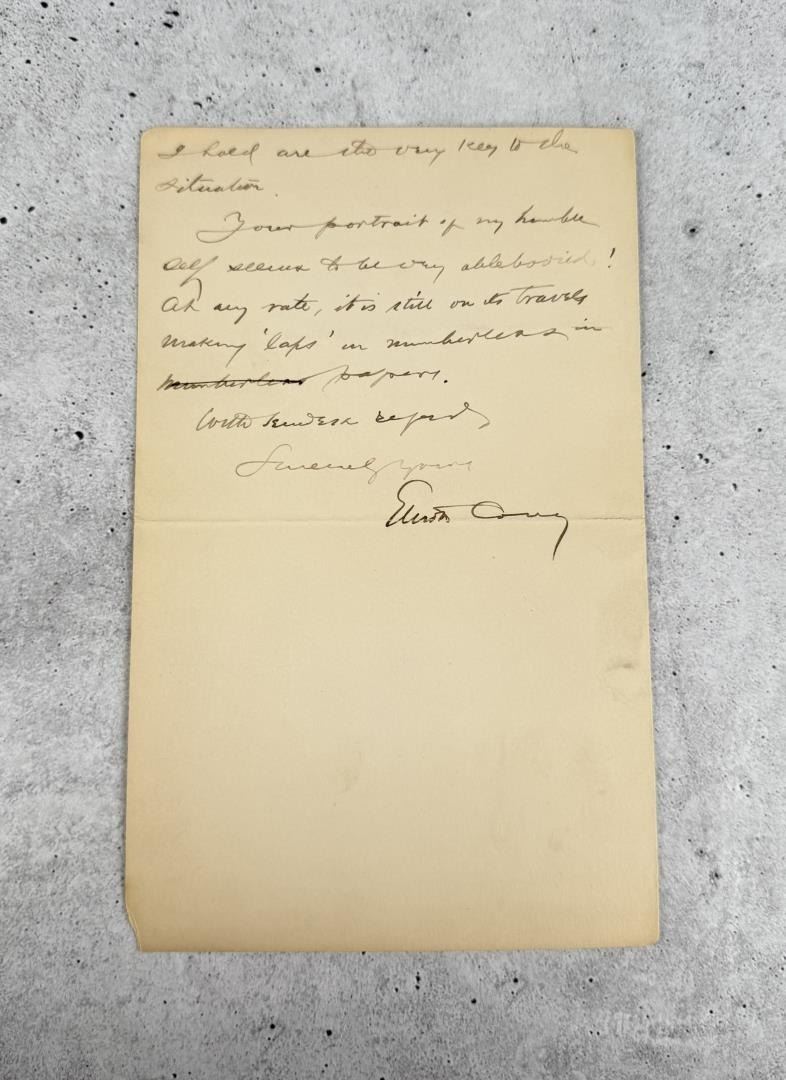 I hold are the very key to the
situation.
Your portrait of my humble
self seems to be very ablebodied!
At any rate, it is still on its travels
making 'laps' in numberless in
numberless papers.
With kindest regards
Sincerely yours